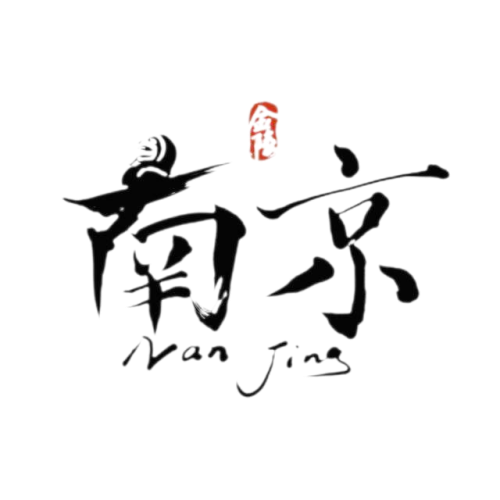 金陵
南京
Nan Jing